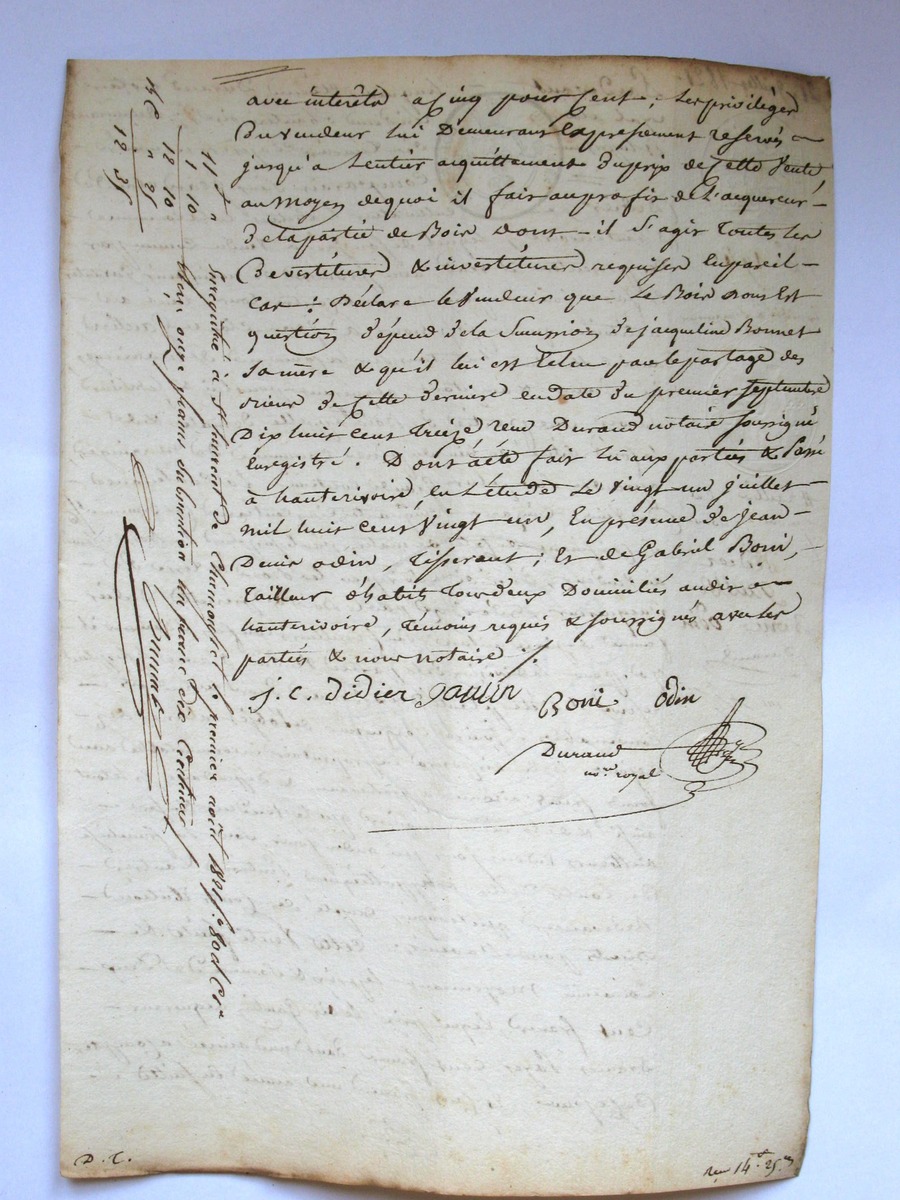 avec intérêts a Cinq pour Cent ; Les privilèges
Du vendeur lui Demeurans Expressement reservés
jusqu'a Lentier acquittement du prix de Cette Vente
au moyen de quoi il fait au profit de L'acquereur
de la partie de Bois dont il S'agit Toutes les
Devestitures & investitures requises En pareil
Cas : Déclare le Vendeur que Le Bois dont Est
question dépend de la Succession de jacqueline Bonnet
Sa mère & qu'il lui est Echu par le partage des
biens de Cette derniere en date du premier Septembre
Dix huit cent Treize reçu Durand notaire soussigné
Enregistré . Dont acte fait lu aux parties & Passé
à hauterivoire, en L'étude Le vingt un juillet
mil huit cent Vingt un, En présence de jean
Denis odin, Tisserant ; Et de Gabriel Boni,
Tailleur d'habits Tous deux Domiciliés audit
hauterivoire, Témoins requis & soussignés avec les
parties & nous notaire ./.
j. c. Didier jaunin
Boni Odin
Durand
no.re royal
Enregistré à St Laurent de Chamousset le premier août 1821 f.o 80
Reçu onze francs Subvention un franc dix Centimes
11 f "
1 10
12 10
" 25
12 35
D. C.
reçu 14 f 25 c